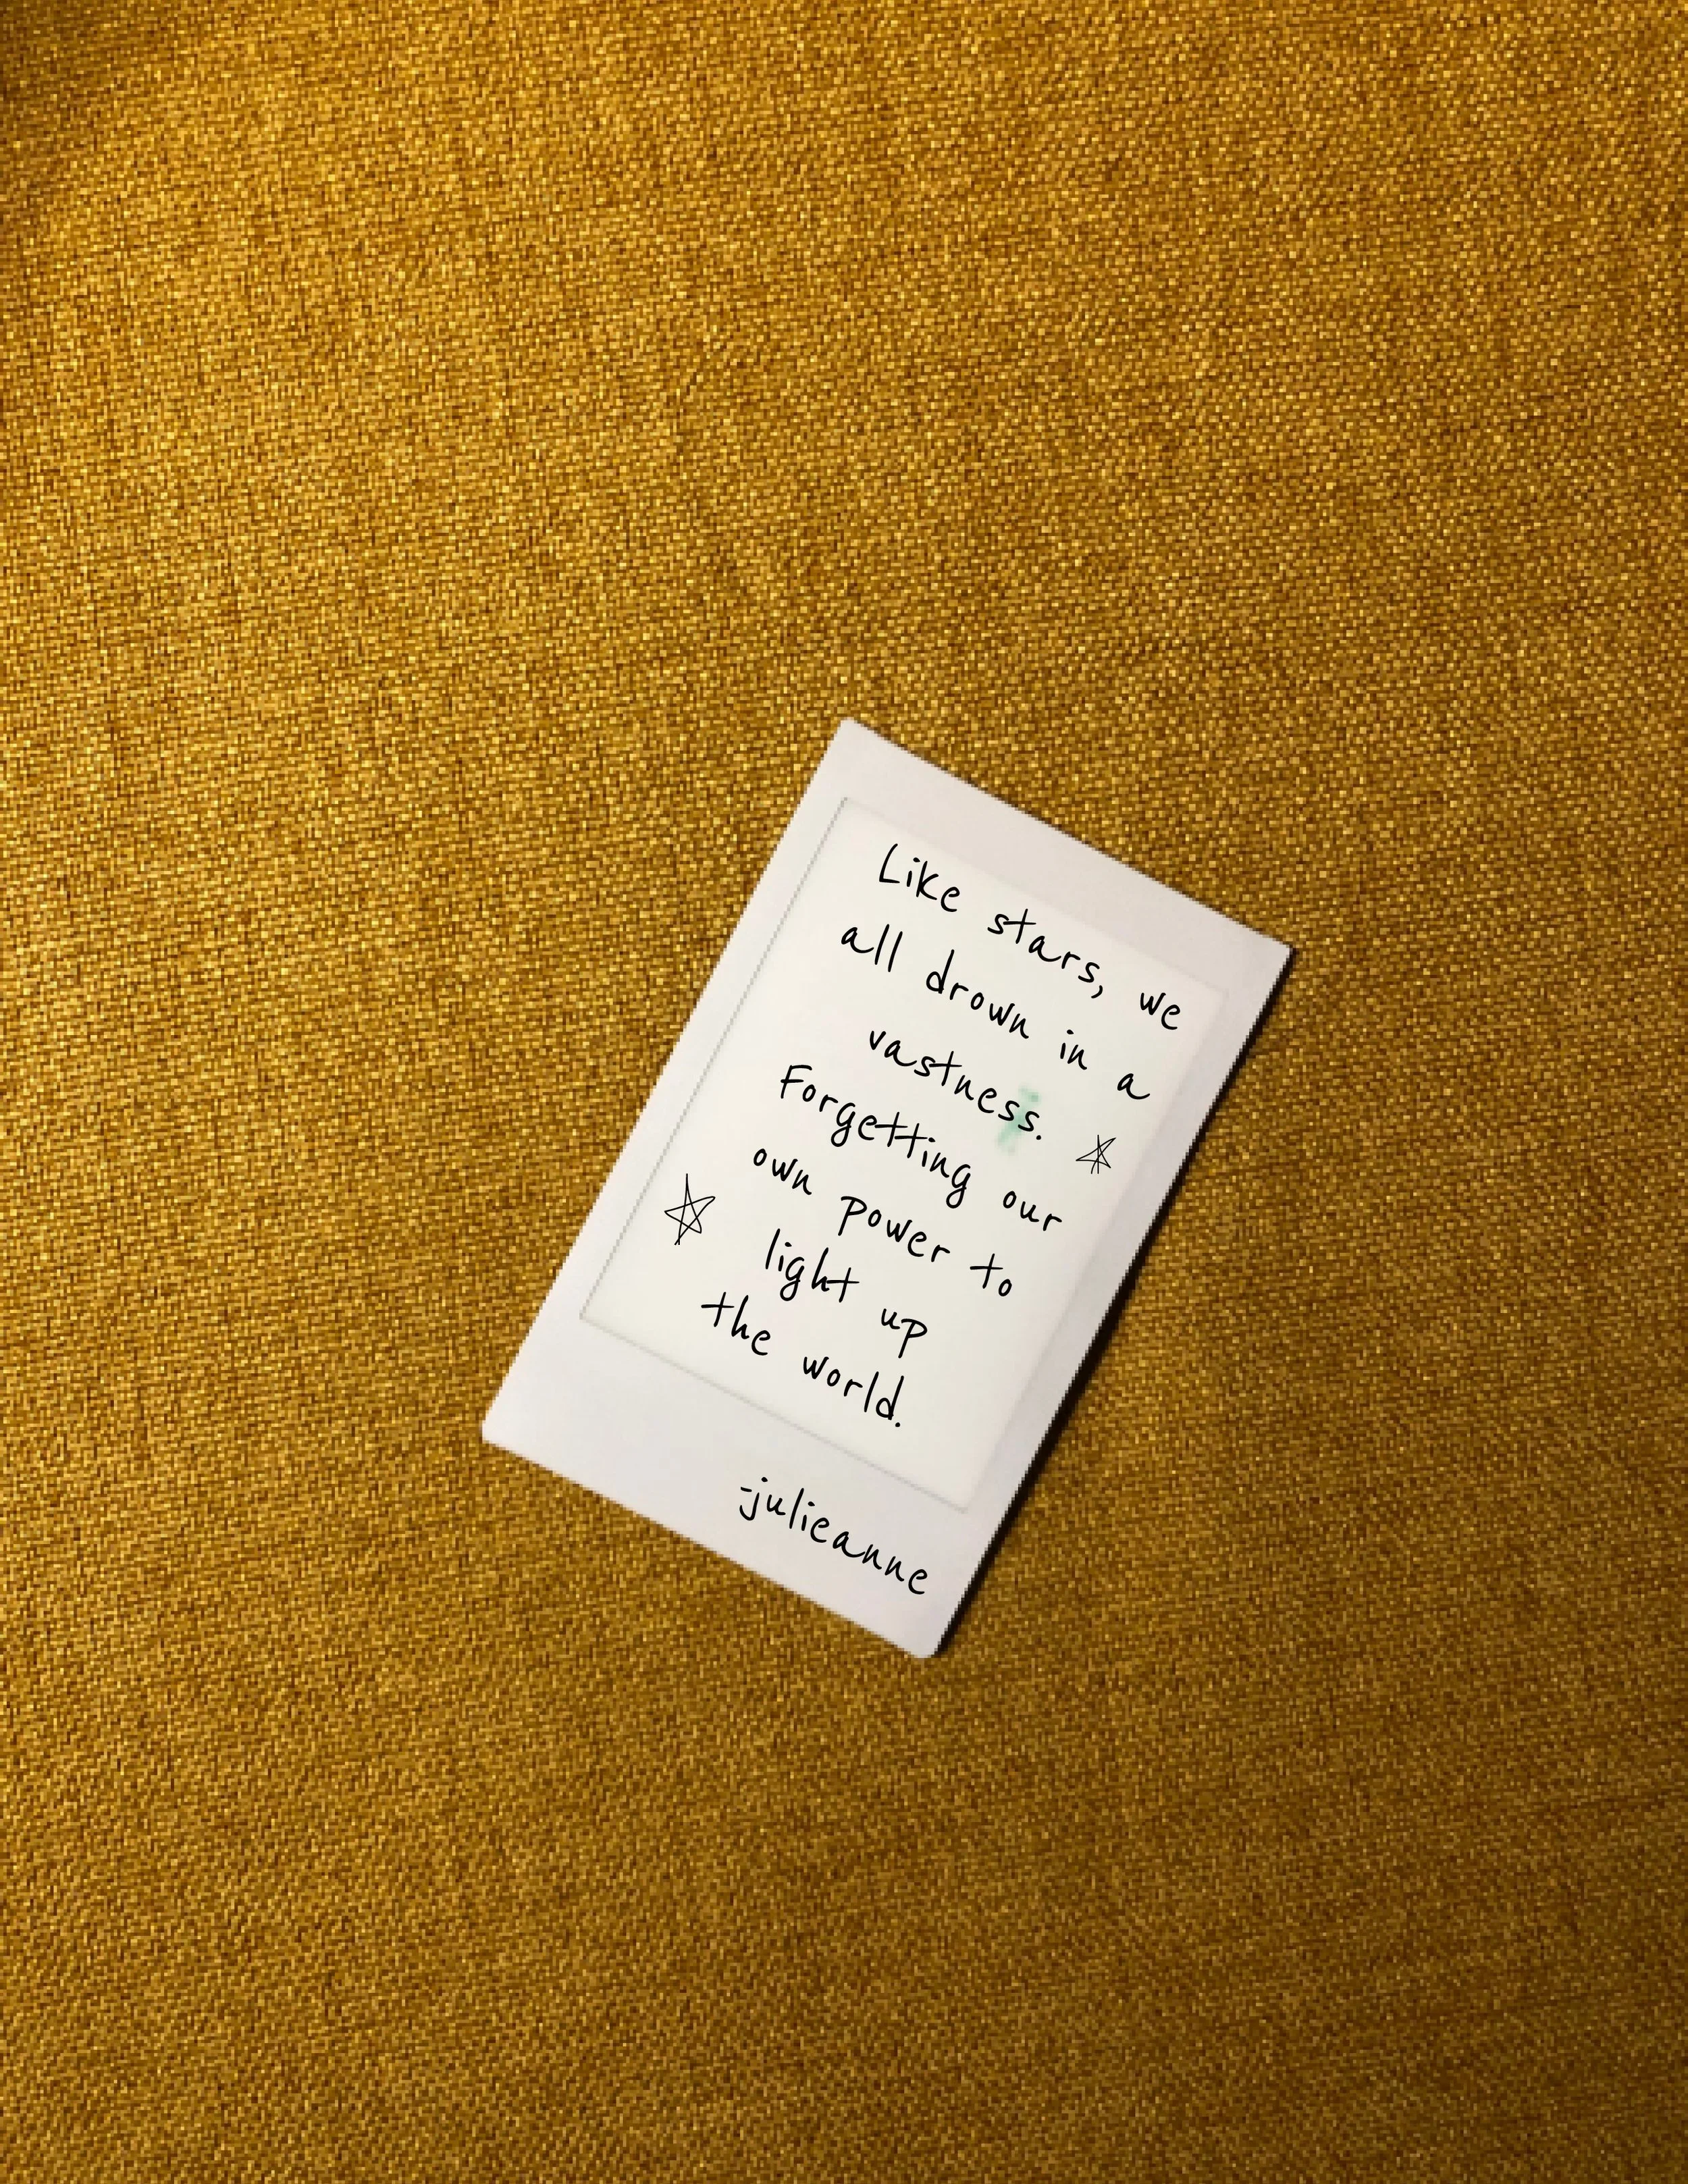 Like stars, we
all drown in a
vastness.
Forgetting our
own power to
light up
the world.
-julieanne